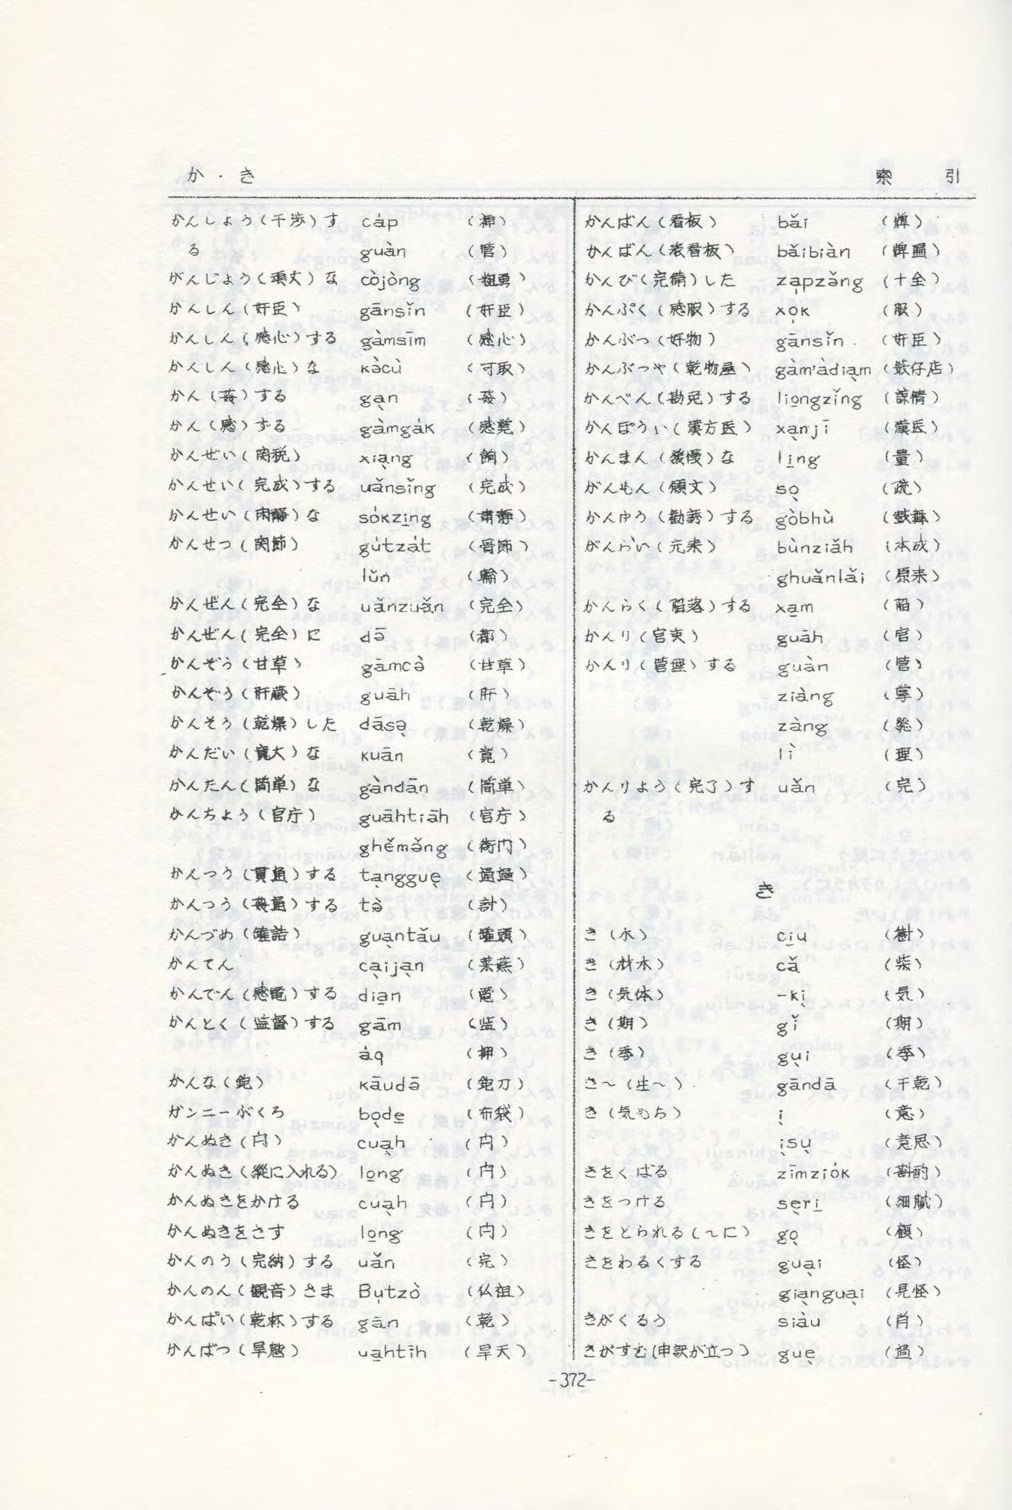 か・き
索引
かんしょう(干渉)す cáp (押)
る guàn (管)
がんじょう(頑丈)な còjòng (粗勇)
かんしん(奸臣) gānsǐn (奸臣)
かんしん(感心)する gàmsīm (感心)
かんしん(感心)な kàcù (可取)
かん(蒸)する gan
かん(感)する gàmgák (感覚)
かんせい(関税) xiang (餉)
かんせい(完成)する uǎnsǐng (完成)
かんせい(閑静)な sókzing (肅静)
かんせつ(関節) gútzát (骨節)
lǔn (輪)
かんぜん(完全)な uǎnzuǎn (完全)
かんぜん(完全)に dō (都)
かんぞう(甘草) gāmcə̀ (甘草)
かんぞう(肝蔵) guāh (肝)
かんそう(乾燥)した dāsə̣ (乾燥)
かんだい(寛大)な kuān (寛)
かんたん(簡単)な gàndān (簡単)
かんちょう(官庁) guāhtiāh (官庁)
ghěmə̌ng (衙門)
かんつう(貫通)する tạngguẹ (通過)
かんつう(姦通)する tə̀ (討)
かんづめ(罐詰) guạntǎu (罐頭)
かんてん cạijạn (菜燕)
かんでん(感電)する dian (電)
かんとく(監督)する gām (監)
áq (押)
かんな(鉋) kāudə̄ (鉋刀)
ガンニーぶくろ bọdẹ (布袋)
かんぬき(閂) cuạh (閂)
かんぬき(縦に入れる) long (閂)
かんぬきをかける cuạh (閂)
かんぬきをさす long (閂)
かんのう(完納)する uǎn (完)
かんのん(観音)さま Bụtzò (仏祖)
かんぱい(乾杯)する gān (乾)
かんばつ(旱魃) uahtīh (旱天)
かんばん(看板) bǎi (牌)
かんばん(表看板) bǎibiàn (牌匾)
かんび(完備)した zạpzə̌ng (十全)
かんぷく(感服)する xọk (服)
かんぶつ(奸物) gānsǐn (奸臣)
かんぶつや(乾物屋) gàm'àdiạm (𥴊仔店)
かんべん(勘免)する liongzǐng (諒情)
かんぽうい(漢方医) xạnjī (漢医)
かんまん(緩慢)な ling (量)
がんもん(願文) sọ (疏)
かんゆう(勧誘)する gòbhù (鼓舞)
がんらい(元来) bùnziǎh (本成)
ghuǎnlǎi (原来)
かんらく(陥落)する xam (陥)
かんり(官吏) guāh (官)
かんり(管理)する guàn (管)
ziàng (掌)
zàng (総)
lì (理)
かんりょう(完了)す uǎn (完)
る
き
き(木) ciu (樹)
き(材木) cǎ (柴)
き(気体) -kị (気)
き(期) gǐ (期)
き(季) gụi (季)
き〜(生〜) gāndā (干乾)
き(気もち) ị (意)
ịsụ (意思)
きをくばる zīmziók (斟酌)
きをつける sẹri (細膩)
きをとられる(〜に) gọ (顧)
きをわるくする guại (怪)
giạnguại (見怪)
きがくるう siàu (肖)
きがすむ(申訳が立つ) guẹ (過)
-372-